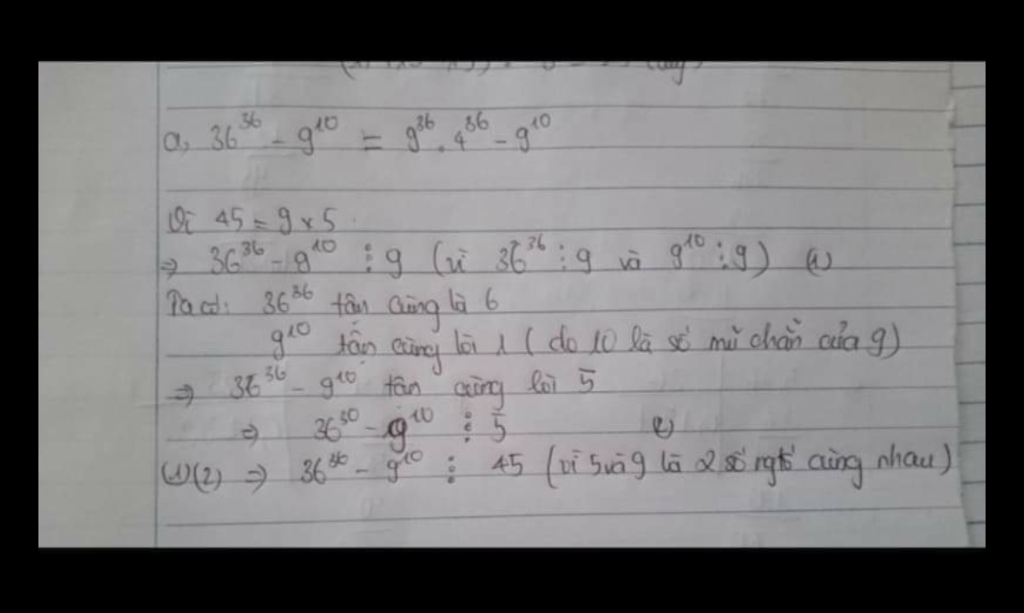 a, 36^36 - 9^10 = 9^36 . 4^36 - 9^10
Vì 45 = 9 x 5
=> 36^36 - 9^10 ⋮ 9 (vì 36^36 ⋮ 9 và 9^10 ⋮ 9) (1)
Ta có: 36^36 tận cùng là 6
9^10 tận cùng là 1 (do 10 là số mũ chẵn của 9)
=> 36^36 - 9^10 tận cùng là 5
=> 36^30 - 9^10 ⋮ 5 (2)
(1)(2) => 36^36 - 9^10 ⋮ 45 (vì 5 và 9 là 2 số ngtố cùng nhau)